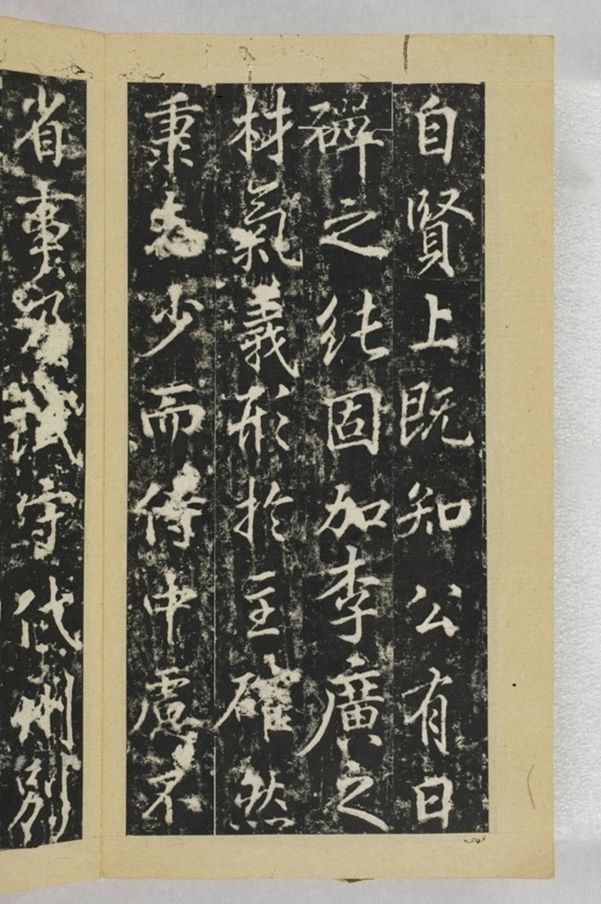 自賢上既知公有日
磾之純固加李廣之
材氣義形於主確然
秉志少而侍中慮不
省事試守代州別